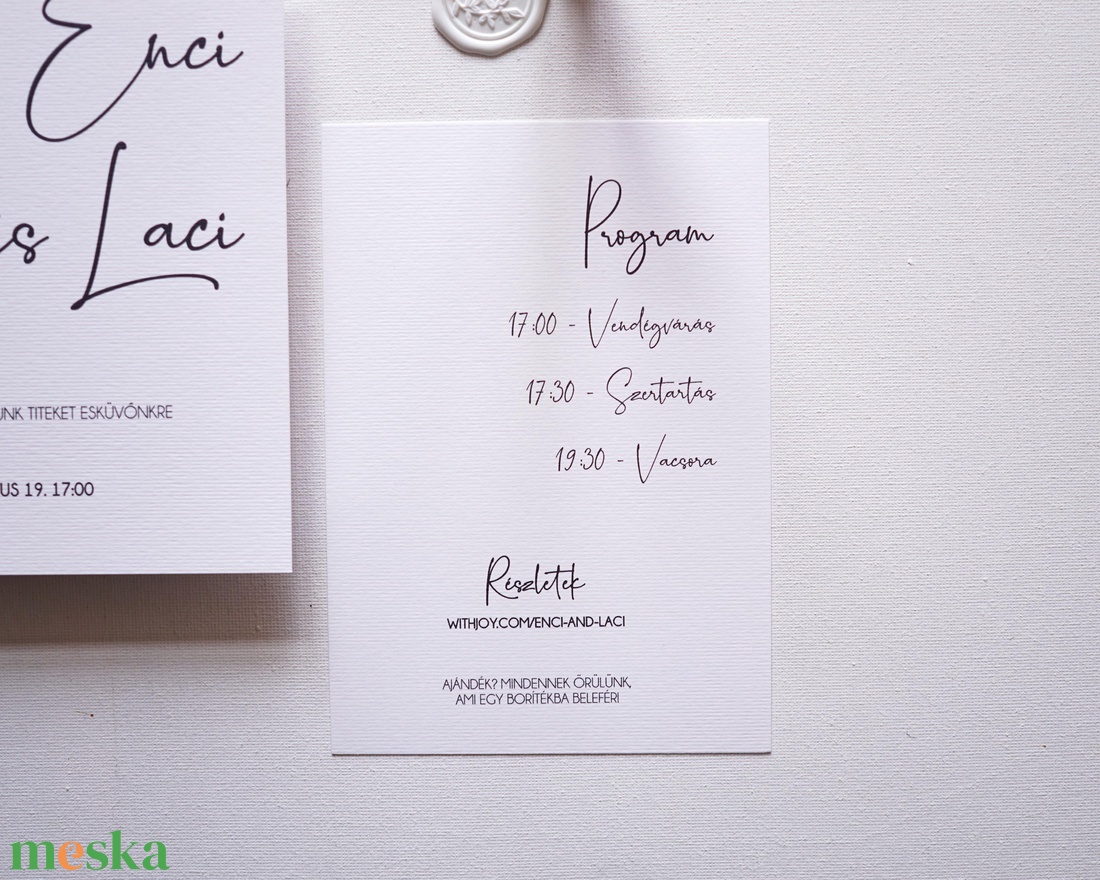 Enci
és Laci
TITEKET ESKÜVŐNKRE
19. 17:00
Program
17:00 - Vendégvárás
17:30 - Szertartás
19:30 - Vacsora
Részletek
WITHJOY.COM/ENCI-AND-LACI
AJÁNDÉK? MINDENNEK ÖRÜLÜNK,
AMI EGY BORÍTÉKBA BELEFÉR!
meska